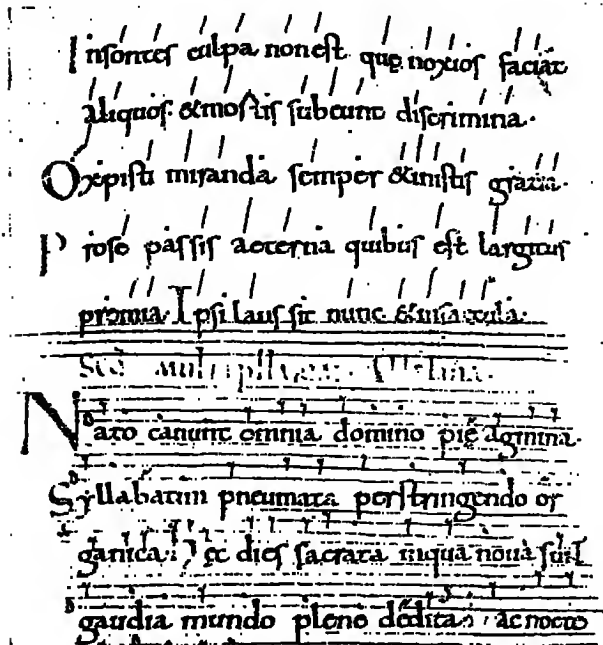 Insontes culpa non est quę noxios faciat
aliquos & mostis subeunt discrimina.
O xp̄isti miranda semper & inistis gratia.
Pro se passis aeterna quibus est largitus
premia. Ipsi laus sit nunc & insaecula.
Nato canunt omnia domino pię agmina.
Syllabatim pneumata perstringendo or
ganica. ec dies sacrata inqua noua sūt
gaudia mundo plene dedita. ac nocte